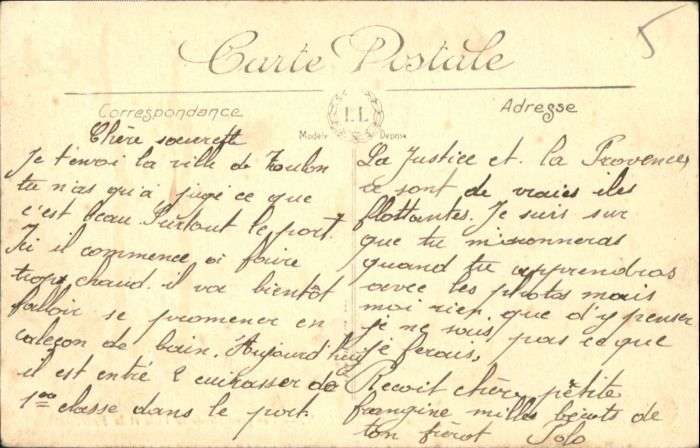 5
Carte Postale
Correspondance
LL
Adresse
Modèle Déposé
Chère soeurette
Je t'envoi la ville de Toulon
tu n'as qu'a jugé ce que
c'est beau. Surtout le port.
Ici il commence a faire
trop chaud. il va bientôt
falloir se promener en
caleçon de bain. Aujourd'huy
il est entré 2 cuirasser de
1ère classe dans le port.
La Justice et la Provence,
ce sont de vraies iles
flottantes. Je suis sur
que tu
quand tu apprendras
avec les photos mais
moi rien que d'y penser
je ne sais pas ce que
je ferais,
Recoit chère petite
frangine milles becots de
ton frérot Polo